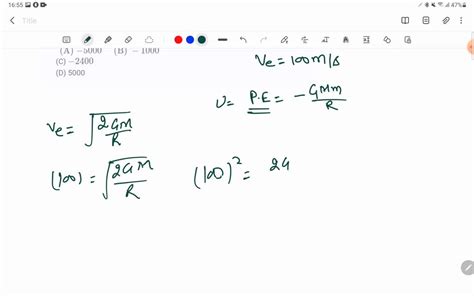 16:55
47%
Title
(A) -5000 (B) - 1000
(C) -2400
(D) 5000
Ve = 100m/s
U = P.E = - GMm/R
Ve = √2GM/R
(100) = √2GM/R
(100)² = 2G